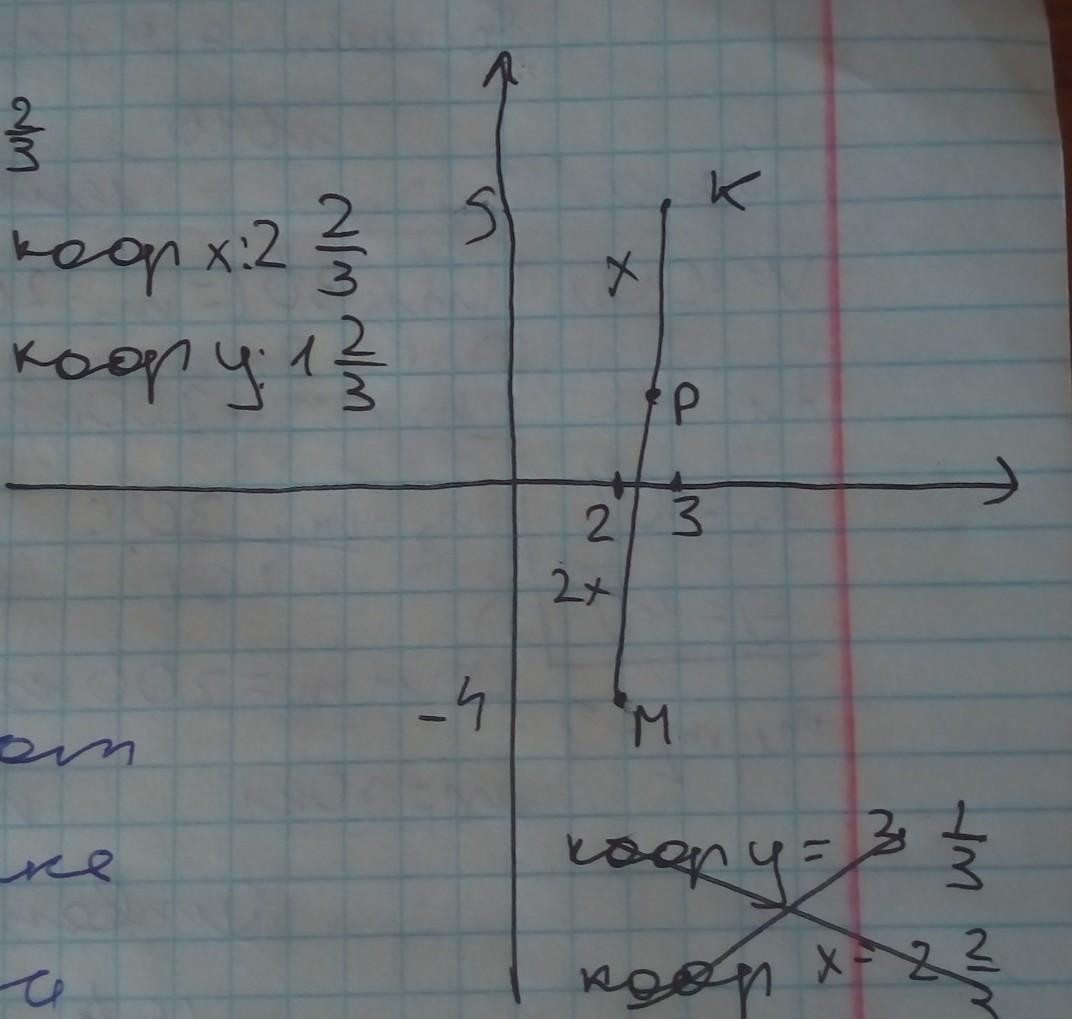 2/3
коор x: 2 2/3
коор y: 1 2/3
5
K
x
P
2 3
2x
-4
M
от
ке
и
коор y = 3 1/3
коор x = 2 2/3